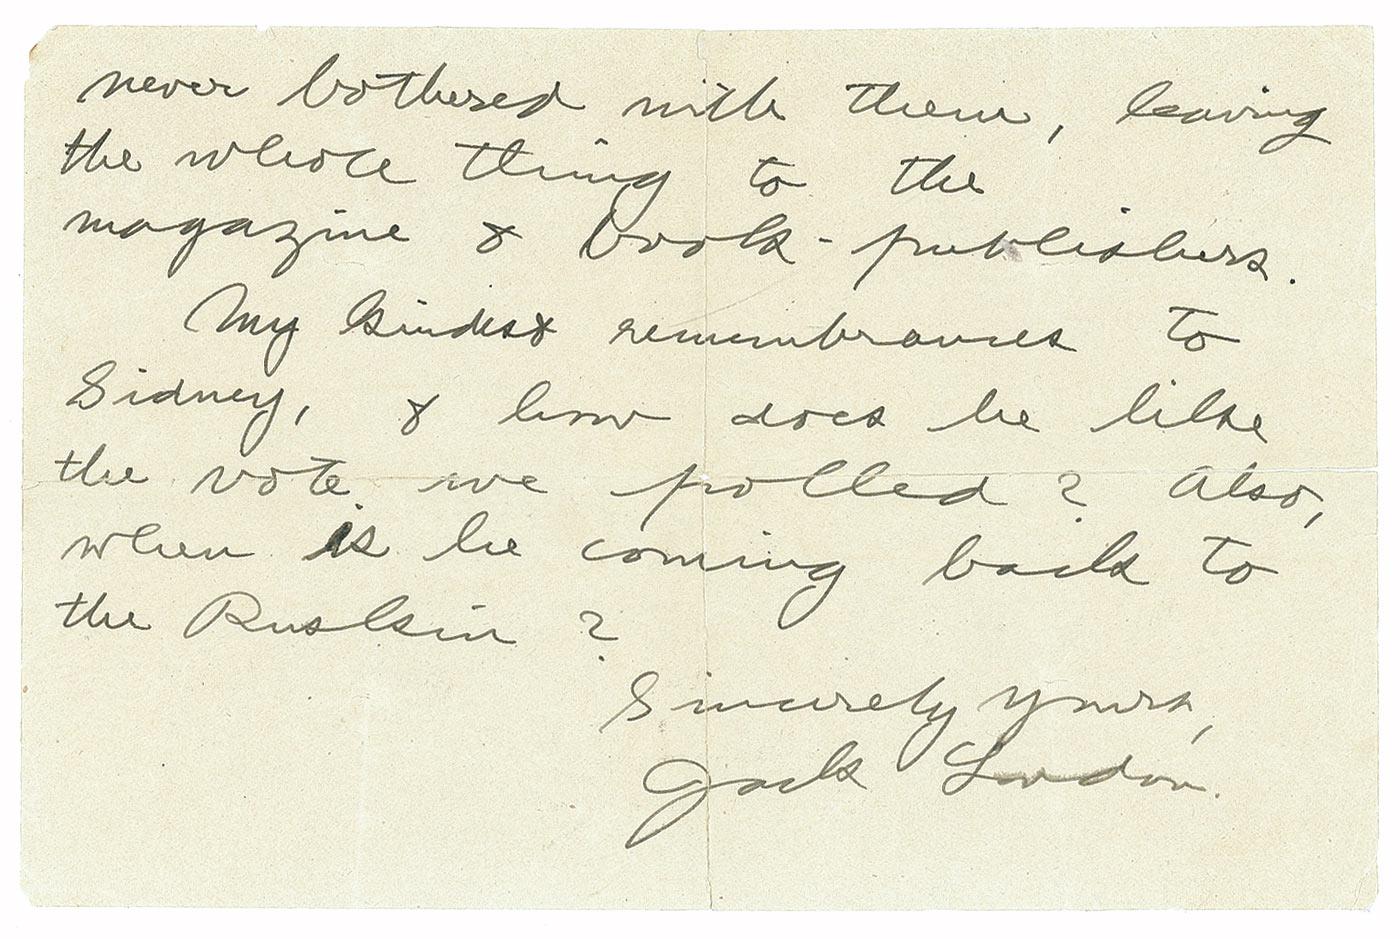 never bothered with them, leaving
the whole thing to the
magazine & book-publishers.
My kindest remembrances to
Sidney, & how does he like
the vote we polled? Also,
when is he coming back to
the Ruskin?
Sincerely yours,
Jack London.